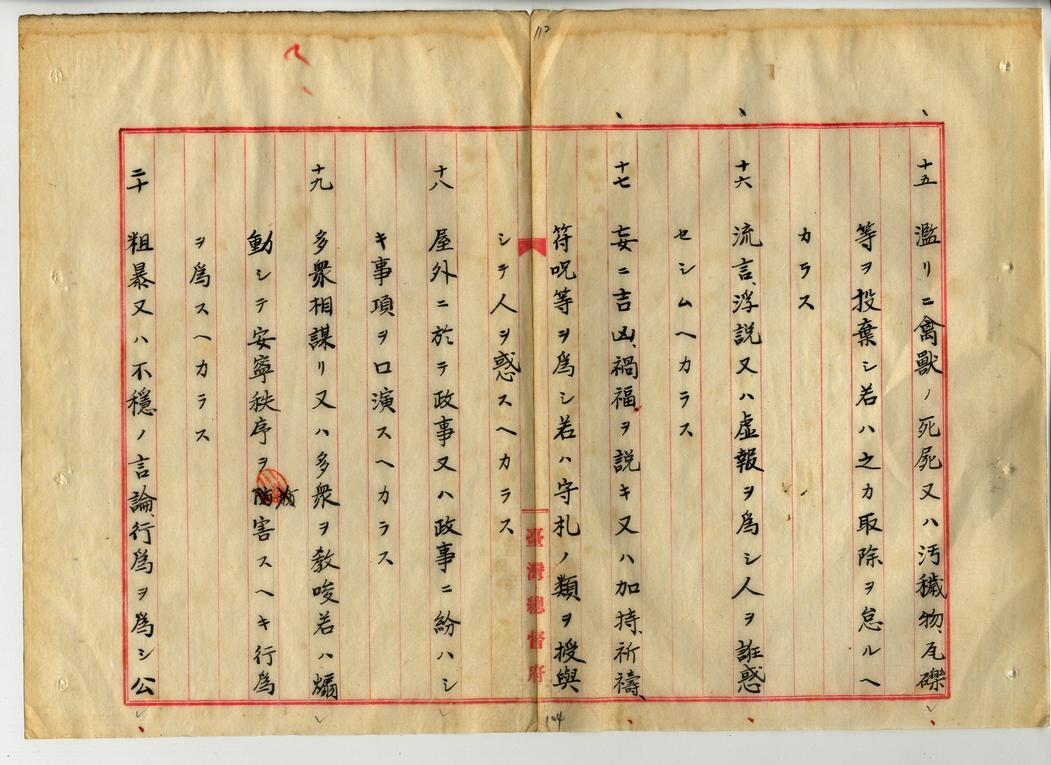 112
十五　濫リニ禽獣ノ死屍又ハ汚穢物、瓦礫
等ヲ投棄シ若ハ之カ取除ヲ怠ルヘ
カラス
十六　流言、浮説又ハ虚報ヲ為シ人ヲ誑惑
セシムヘカラス
十七　妄ニ吉凶、禍福ヲ説キ又ハ加持、祈禱、
符呪等ヲ為シ若ハ守札ノ類ヲ授與
シテ人ヲ惑スヘカラス
臺灣總督府
104
十八　屋外ニ於テ政事又ハ政事ニ紛ハシ
キ事項ヲ口演スヘカラス
十九　多衆相謀リ又ハ多衆ヲ教唆若ハ煽
動シテ安寧秩序ヲ害スヘキ行為
ヲ為スヘカラス
二十　粗暴又ハ不穏ノ言論、行為ヲ為シ公